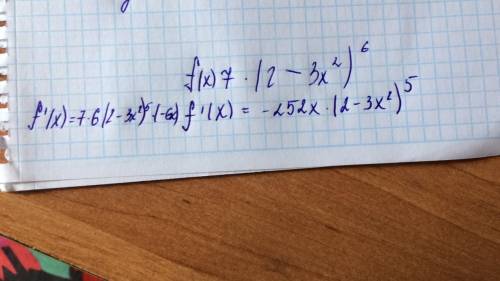 f(x) 7 · (2 - 3x²)⁶
f'(x) = 7·6(2 - 3x²)⁵·(-6x) f'(x) = -252x · (2 - 3x²)⁵